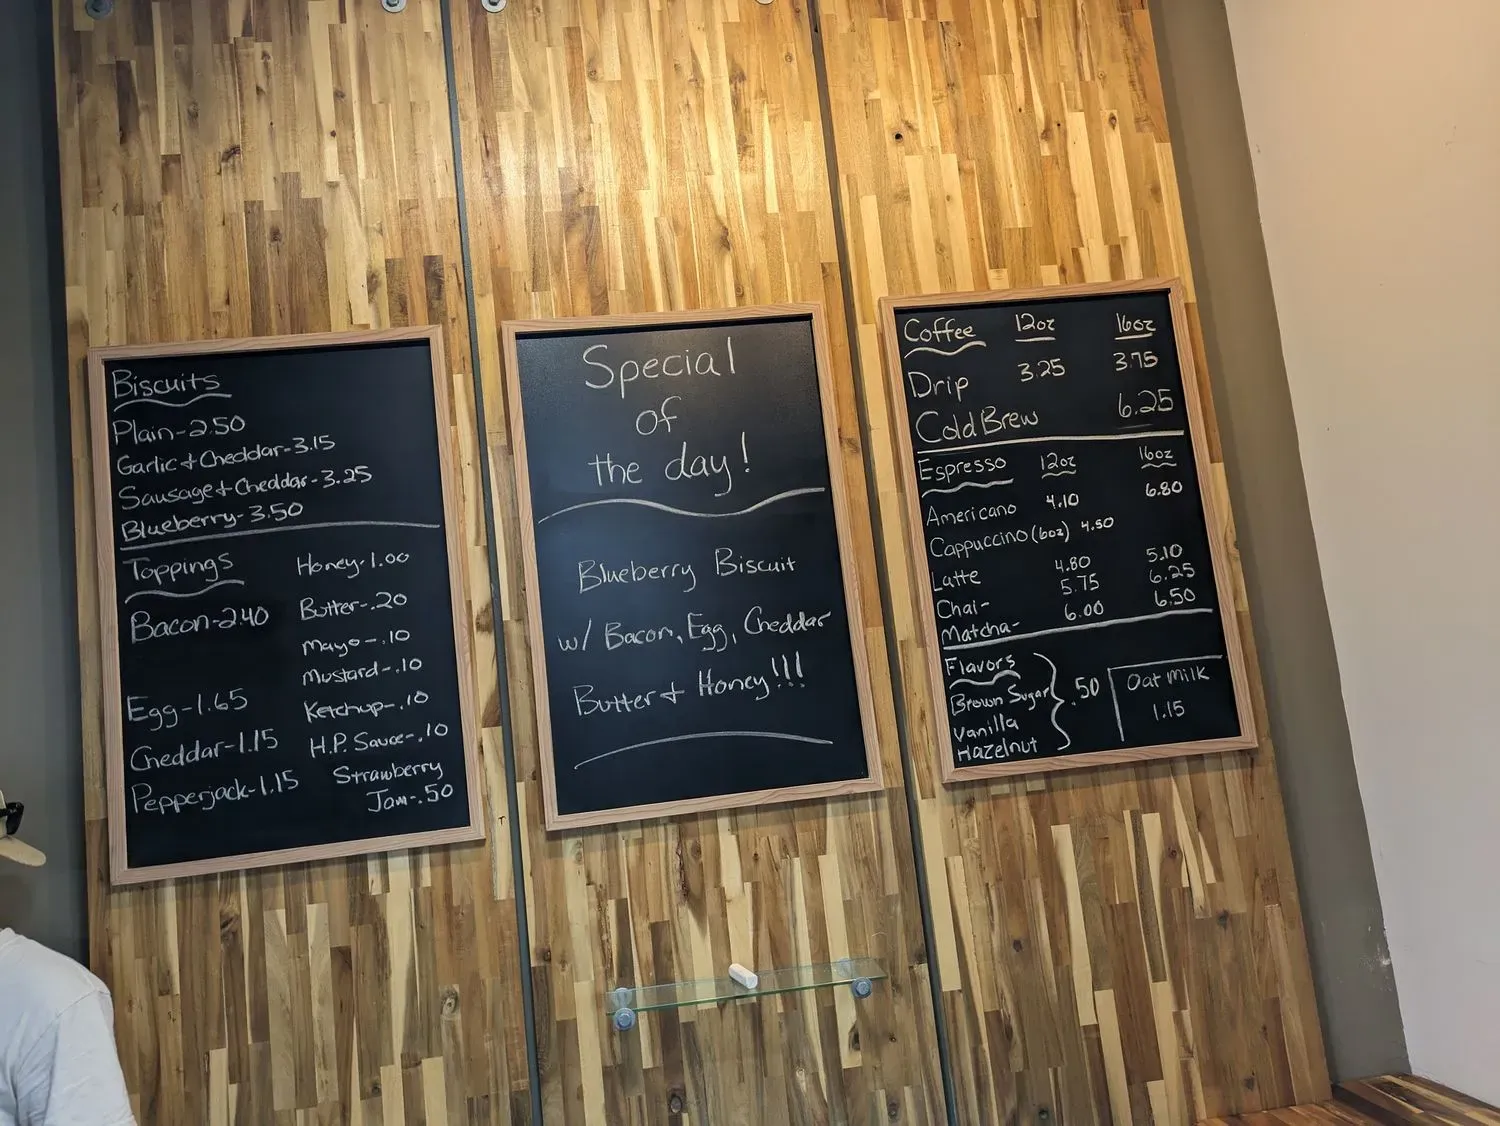 Biscuits
Plain-2.50
Garlic + Cheddar-3.15
Sausage + Cheddar-3.25
Blueberry-3.50
Toppings
Bacon-2.40
Egg-1.65
Cheddar-1.15
Pepperjack-1.15
Honey-1.00
Butter-.20
Mayo-.10
Mustard-.10
Ketchup-.10
H.P. Sauce-.10
Strawberry
Jam-.50
Special
of
the day!
Blueberry Biscuit
w/ Bacon, Egg, Cheddar
Butter + Honey!!!
Coffee 12oz 16oz
Drip 3.25 3.75
Cold Brew 6.25
Espresso 12oz 16oz
Americano 4.10 6.80
Cappuccino (6oz) 4.50
Latte 4.80 5.10
Chai- 5.75 6.25
Matcha- 6.00 6.50
Flavors
Brown Sugar
Vanilla
Hazelnut
.50
Oat milk
1.15